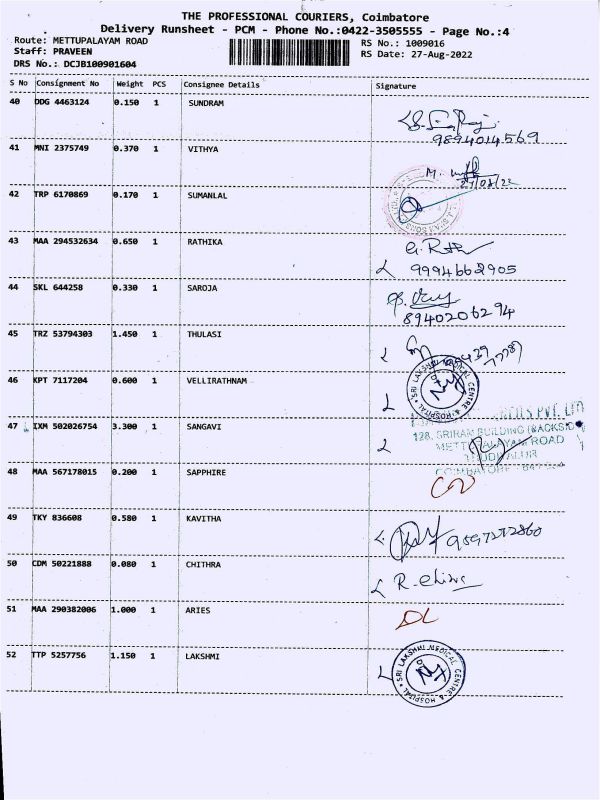 THE PROFESSIONAL COURIERS, Coimbatore
Delivery Runsheet - PCM - Phone No.:0422-3505555 - Page No.:4
Route: METTUPALAYAM ROAD RS No.: 1009016
Staff: PRAVEEN RS Date: 27-Aug-2022
DRS No.: DCJB100901604
S No Consignment No Weight PCS Consignee Details Signature
40 DDG 4463124 0.150 1 SUNDRAM
9894014569
41 MNI 2375749 0.370 1 VITHYA
27/08/22
42 TRP 6170869 0.170 1 SUMANLAL
43 MAA 294532634 0.650 1 RATHIKA
9994662905
44 SKL 644258 0.330 1 SAROJA
8940206294
45 TRZ 53794303 1.450 1 THULASI
46 KPT 7117204 0.600 1 VELLIRATHNAM
SRI LAKSHMI MEDICAL CENTRE & HOSPITAL
47 IXM 502026754 3.300 1 SANGAVI
128, SRIRAM BUILDING (BACKSIDE
METTUPALAYAM ROAD
48 MAA 567178015 0.200 1 SAPPHIRE
COIMBATORE
49 TKY 836608 0.580 1 KAVITHA
50 CDM 50221888 0.080 1 CHITHRA
51 MAA 290382006 1.000 1 ARIES
DL
52 TTP 5257756 1.150 1 LAKSHMI
SRI LAKSHMI MEDICAL CENTRE & HOSPITAL